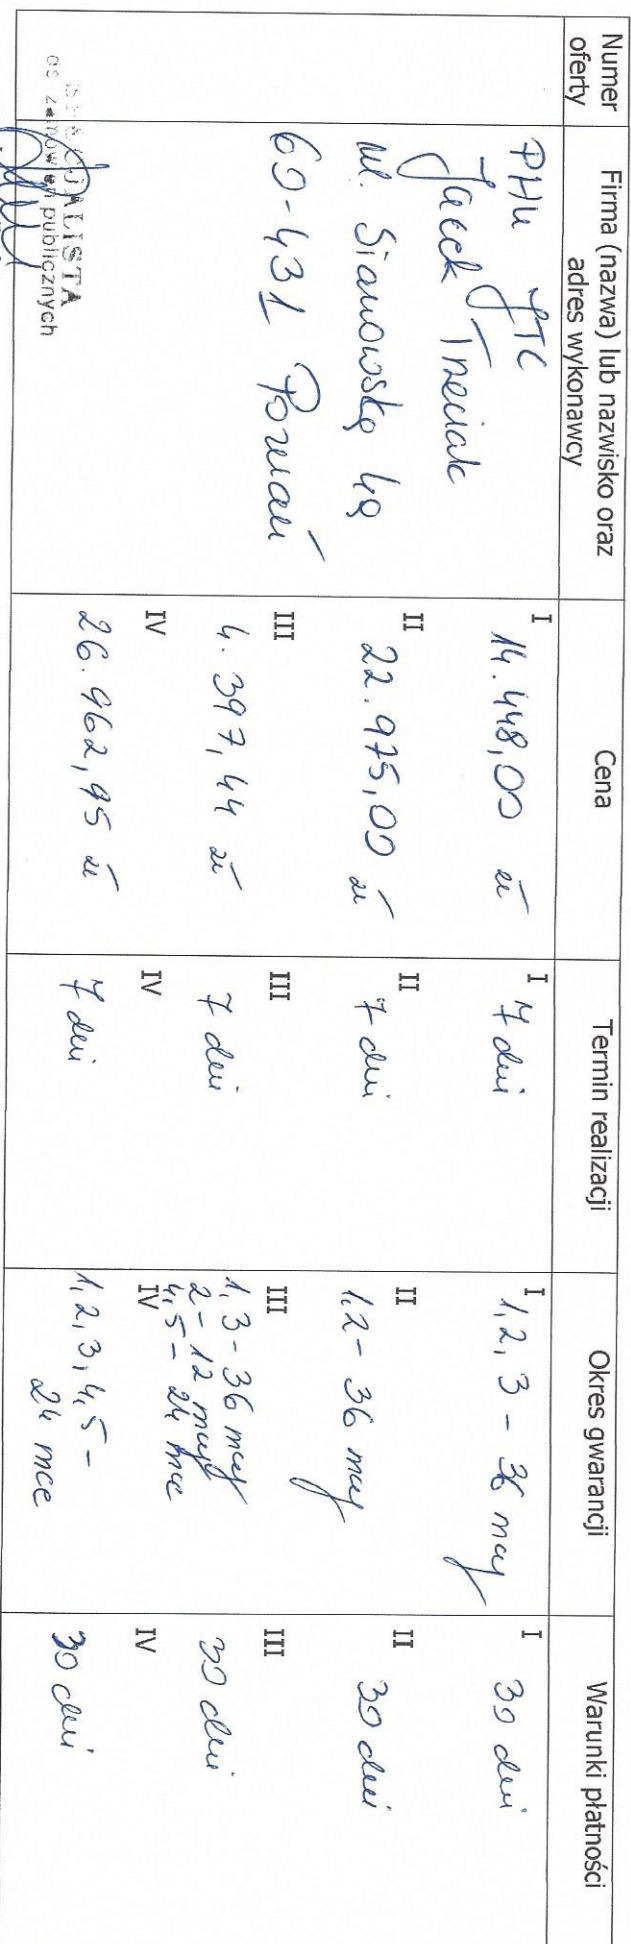 Numer
oferty
Firma (nazwa) lub nazwisko oraz
adres wykonawcy
Cena
Termin realizacji
Okres gwarancji
Warunki płatności
PHU JTC
Jacek Trzeciak
ul. Sianowska 4a
60-431 Poznań
I
14.448,00 zł
II
22.975,00 zł
III
4.397,44 zł
IV
26.962,95 zł
I
7 dni
II
7 dni
III
7 dni
IV
7 dni
I
1,2,3 - 36 mcy
II
1,2 - 36 mcy
III
1,3 - 36 mcy
2 - 12 mcy
4,5 - 24 mce
IV
1,2,3,4,5 -
24 mce
I
30 dni
II
30 dni
III
30 dni
IV
30 dni
SPECJALISTA
ds. zamówień publicznych